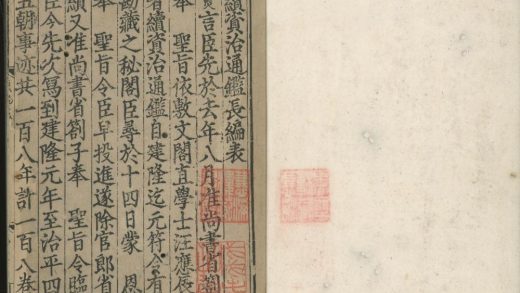 續資治通鑑長編表
言臣先於去年八月准尚書省劄
奉 聖旨依敷文閣直學士汪應辰
續資治通鑑自建隆迄元符令有
勘藏之秘閣臣尋於十四日蒙 恩
奉 聖旨令臣早投進遂除官郎省
續又准尚書省劄子奉 聖旨令臨
臣今先次寫到建隆元年至治平四
五朝事迹共一百八年計一百八卷